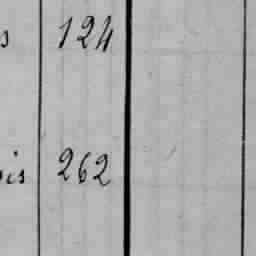 s 124
is 262